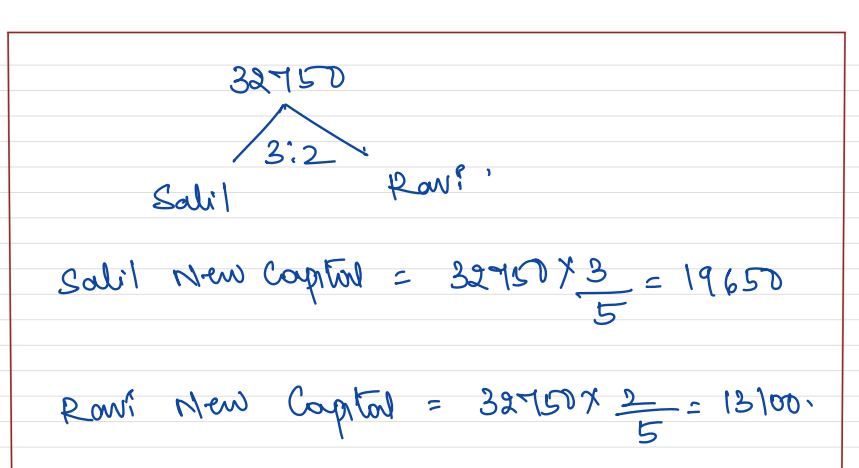 32750
3:2
Salil Ravi
Salil New Capital = 32750 × 3/5 = 19650
Ravi New Capital = 32750 × 2/5 = 13100.